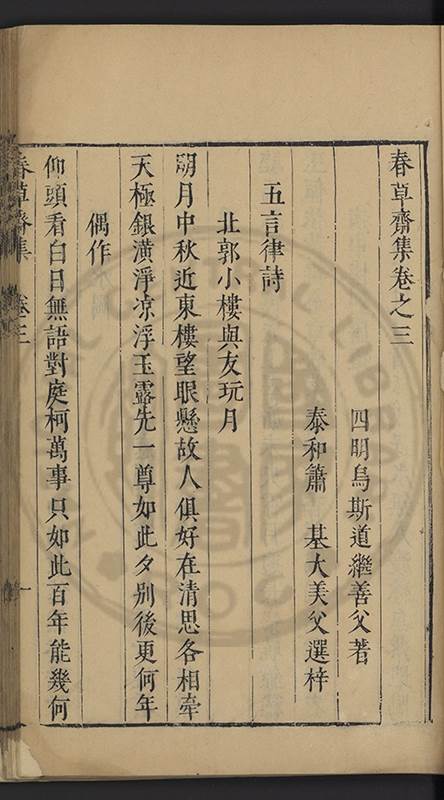 春草齋集卷之三
四明烏斯道繼善父著
泰和簫　基大美父選梓
五言律詩
北郭小樓與友玩月
朙月中秋近東樓望眼懸故人俱好在清思各相牽
天極銀潢淨凉浮玉露先一尊如此夕别後更何年
偶作
仰頭看白日無語對庭柯萬事只如此百年能幾何
春草齋集　卷三　一